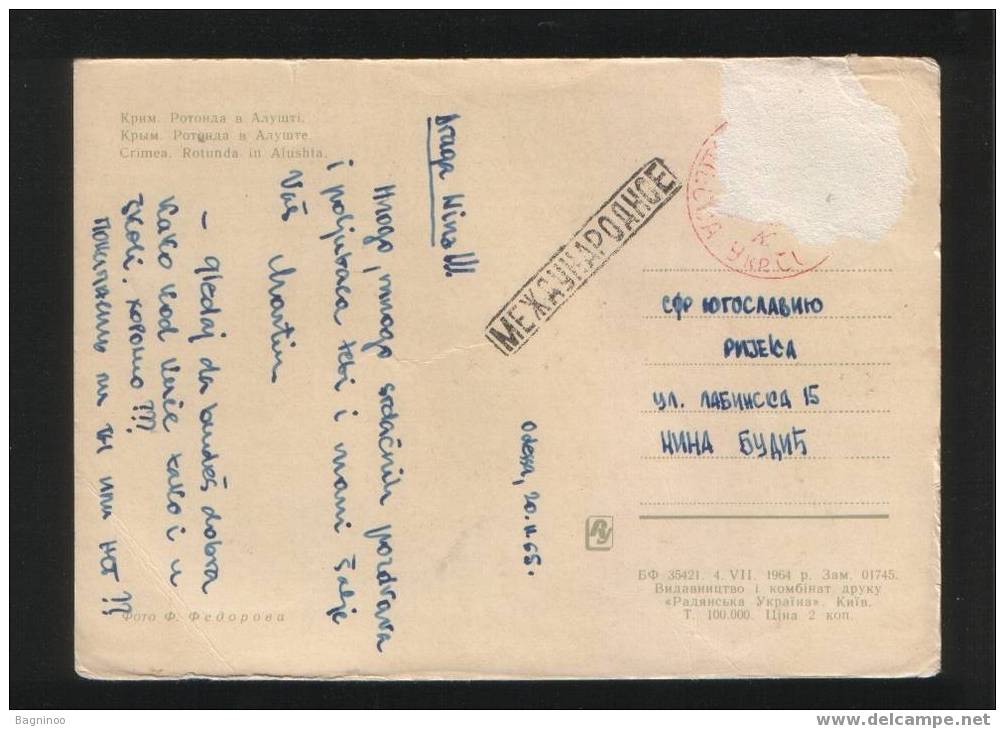 Крим. Ротонда в Алушті.
Крым. Ротонда в Алуште.
Crimea. Rotunda in Alushta.
МЕЖДУНАРОДНОЕ
Draga Nina!!!
Mnogo, mnogo srdačnih pozdrava
i poljubaca tebi i mami šalje
Vaš Martin
– gledaj da budeš dobra
kako kod kuće tako i u
školi. хорошо???
ты или нет??
Odessa, 20.II.65.
СФР ЮГОСЛАВИЮ
РИЈЕКА
УЛ. ЛАБИНСКА 15
НИНА БУДИЋ
БФ 35421. 4. VII. 1964 р. Зам. 01745.
Видавництво і комбінат друку
«Радянська Україна». Київ.
Т. 100.000. Ціна 2 коп.
Фото Ф. Федорова
Bagninoo
www.delcampe.net